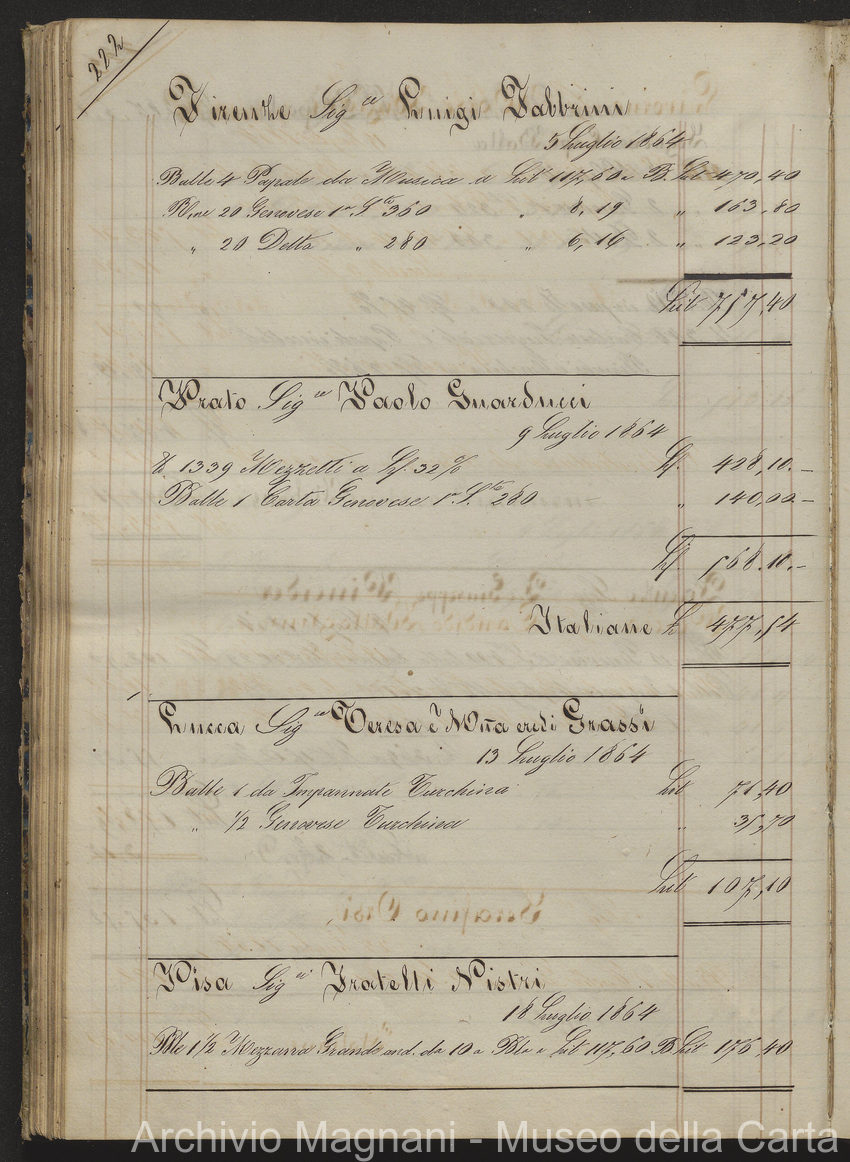 222
Firenze Sig.re Luigi Fabbrini
5 Luglio 1864
Balle 4 Papale da Musica a Lit 117,60 a B. Lit 470,40
Rme 20 Genovese 1a S.ta 360 " 8,19 " 163,80
" 20 Detta " 280 " 6,16 " 123,20
Lit 757,40
Prato Sig.re Paolo Guarducci
9 Luglio 1864
1339 Mezzetti a Lf. 32 % Lf. 428,10.-
Balle 1 Carta Genovese 1a S.ta 280 " 140,00 -
Lf 568.10.-
Italiane L 477,54
Lucca Sig.re Teresa e Mña eredi Grassi
13 Luglio 1864
Balle 1 da Impannate Turchina Lit 71,40
" 1/2 Genovese Turchina " 35,70
Lit 107,10
Pisa Sig.ri Fratelli Nistri
18 Luglio 1864
Ble 1 1/2 Mezzana Grande and. da 10 a Bla a Lit 117,60 B Lit 176,40
Serafino Orsi
Archivio Magnani - Museo della Carta